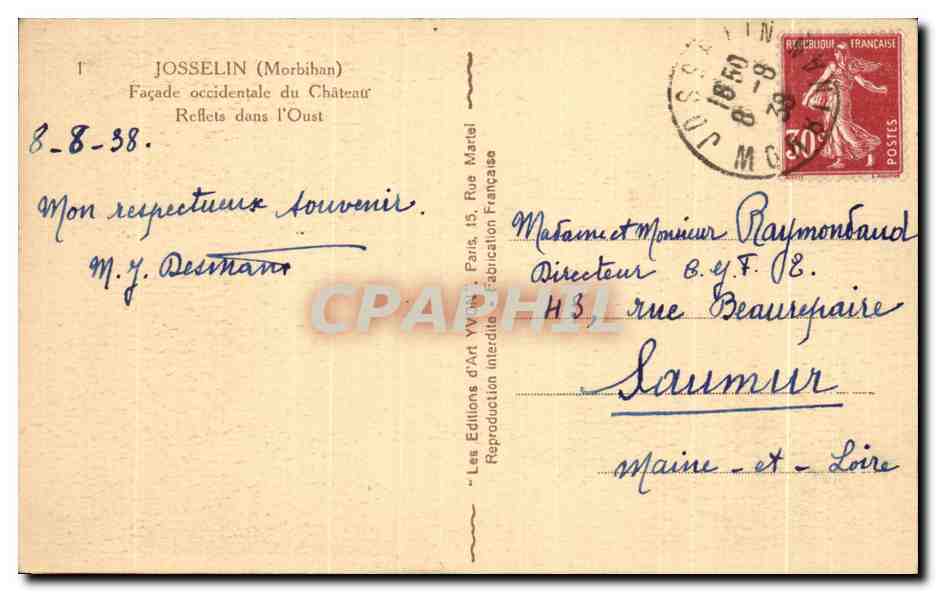 1 JOSSELIN (Morbihan)
Façade occidentale du Château
Reflets dans l'Oust
8-8-38.
Mon respectueux souvenir.
M. J. Desmans
"Les Editions d'Art YVON", Paris, 15, Rue Martel
Reproduction interdite - Fabrication Française
JOSSELIN MORBIHAN
18 50
8 - 8
38
REPUBLIQUE FRANÇAISE
30c
POSTES
Madame et Monsieur Raymondaud
Directeur C.G.F.E.
43, rue Beaurepaire
Saumur
Maine-et-Loire
CPAPHIL